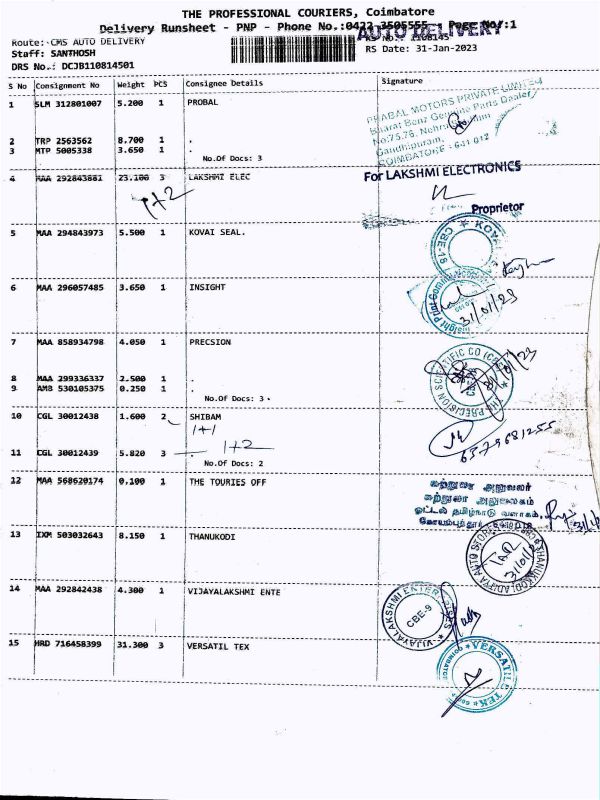 THE PROFESSIONAL COURIERS, Coimbatore
Delivery Runsheet - PNP - Phone No.:0422 3505555 Page No/:1
AUTO DELIVERY
Route: CMS AUTO DELIVERY
RS No.: 1108145
Staff: SANTHOSH
RS Date: 31-Jan-2023
DRS No.: DCJB110814501
S No Consignment No Weight PCS Consignee Details Signature
1 SLM 312801007 5.200 1 PROBAL
PRABAL MOTORS PRIVATE LIMITED
Bharat Benz Genuine Parts Dealer
No:75,76, Nehru
Gandhipuram,
COIMBATORE - 641 012
2 TRP 2563562 8.700 1 .
3 MTP 5085338 3.650 1 .
No.Of Docs: 3
4 MAA 292843881 23.100 3 LAKSHMI ELEC
1+2
For LAKSHMI ELECTRONICS
Proprietor
5 MAA 294843973 5.500 1 KOVAI SEAL.
KOVAI
CBE-18
6 MAA 296057485 3.650 1 INSIGHT
Insight Print Communi
31/01/23
7 MAA 858934798 4.050 1 PRECSION
THE PRECISION SCIENTIFIC CO (CBE)
31/01/23
8 MAA 299336337 2.500 1 .
9 AMB 530105375 0.250 1 .
No.Of Docs: 3
10 CGL 30012438 1.600 2 SHIBAM
1+1
11 CGL 30012439 5.820 3 1+2
6379681255
No.Of Docs: 2
12 MAA 568620174 0.100 1 THE TOURIES OFF
சுற்றுலா அலுவலர்
சுற்றுலா அலுவலகம்
ஓட்டல் தமிழ்நாடு வளாகம்,
கோயம்புத்தூர் - 641 018
13 IXM 503032643 8.150 1 THANUKODI
THANUKODI ADITYA AUTO STORES
14 MAA 292842438 4.300 1 VIJAYALAKSHMI ENTE
VIJAYALAKSHMI ENTERPRISES
CBE-9
15 HRD 716458399 31.300 3 VERSATIL TEX
VERSATIL TEK
COIMBATORE